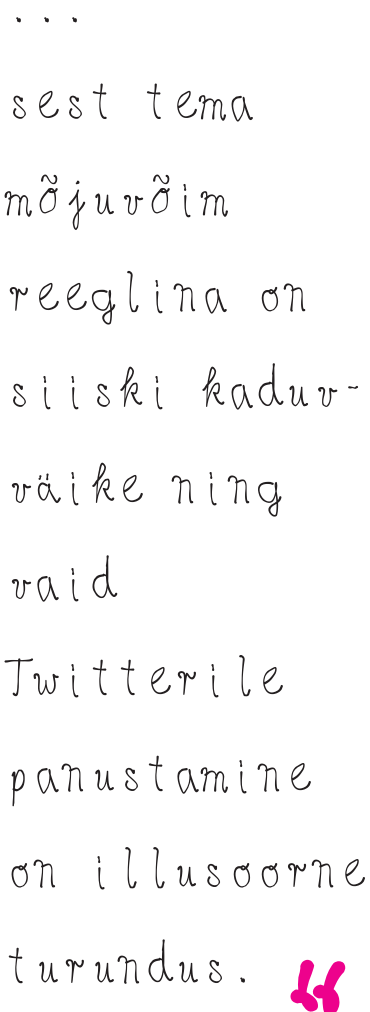 ...
sest tema
mõjuvõim
reeglina on
siiski kaduv-
väike ning
vaid
Twitterile
panustamine
on illusoorne
turundus. “